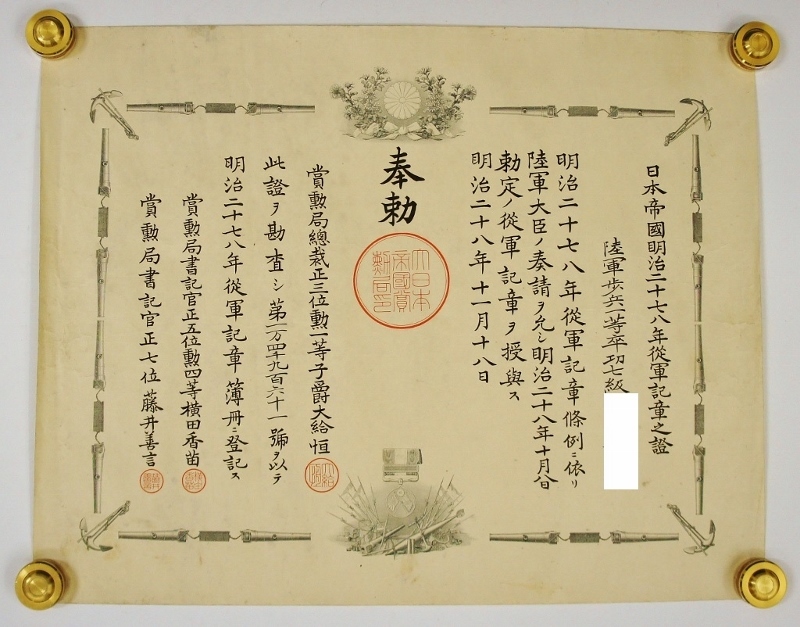 日本帝國明治二十七八年從軍記章之證
陸軍歩兵一等卒功七級
明治二十七八年從軍記章條例ニ依リ
陸軍大臣ノ奏請ヲ允シ明治二十八年十月八日
勅定ノ從軍記章ヲ授與ス
明治二十八年十一月十八日
奉勅
大日本帝國賞勳局印
賞勳局總裁正三位勳一等子爵大給恒
此證ヲ勘査シ第一万四千九百六十一號ヲ以テ
明治二十七八年從軍記章簿冊ニ登記ス
賞勳局書記官正五位勳四等橫田香苗
賞勳局書記官正七位藤井善言